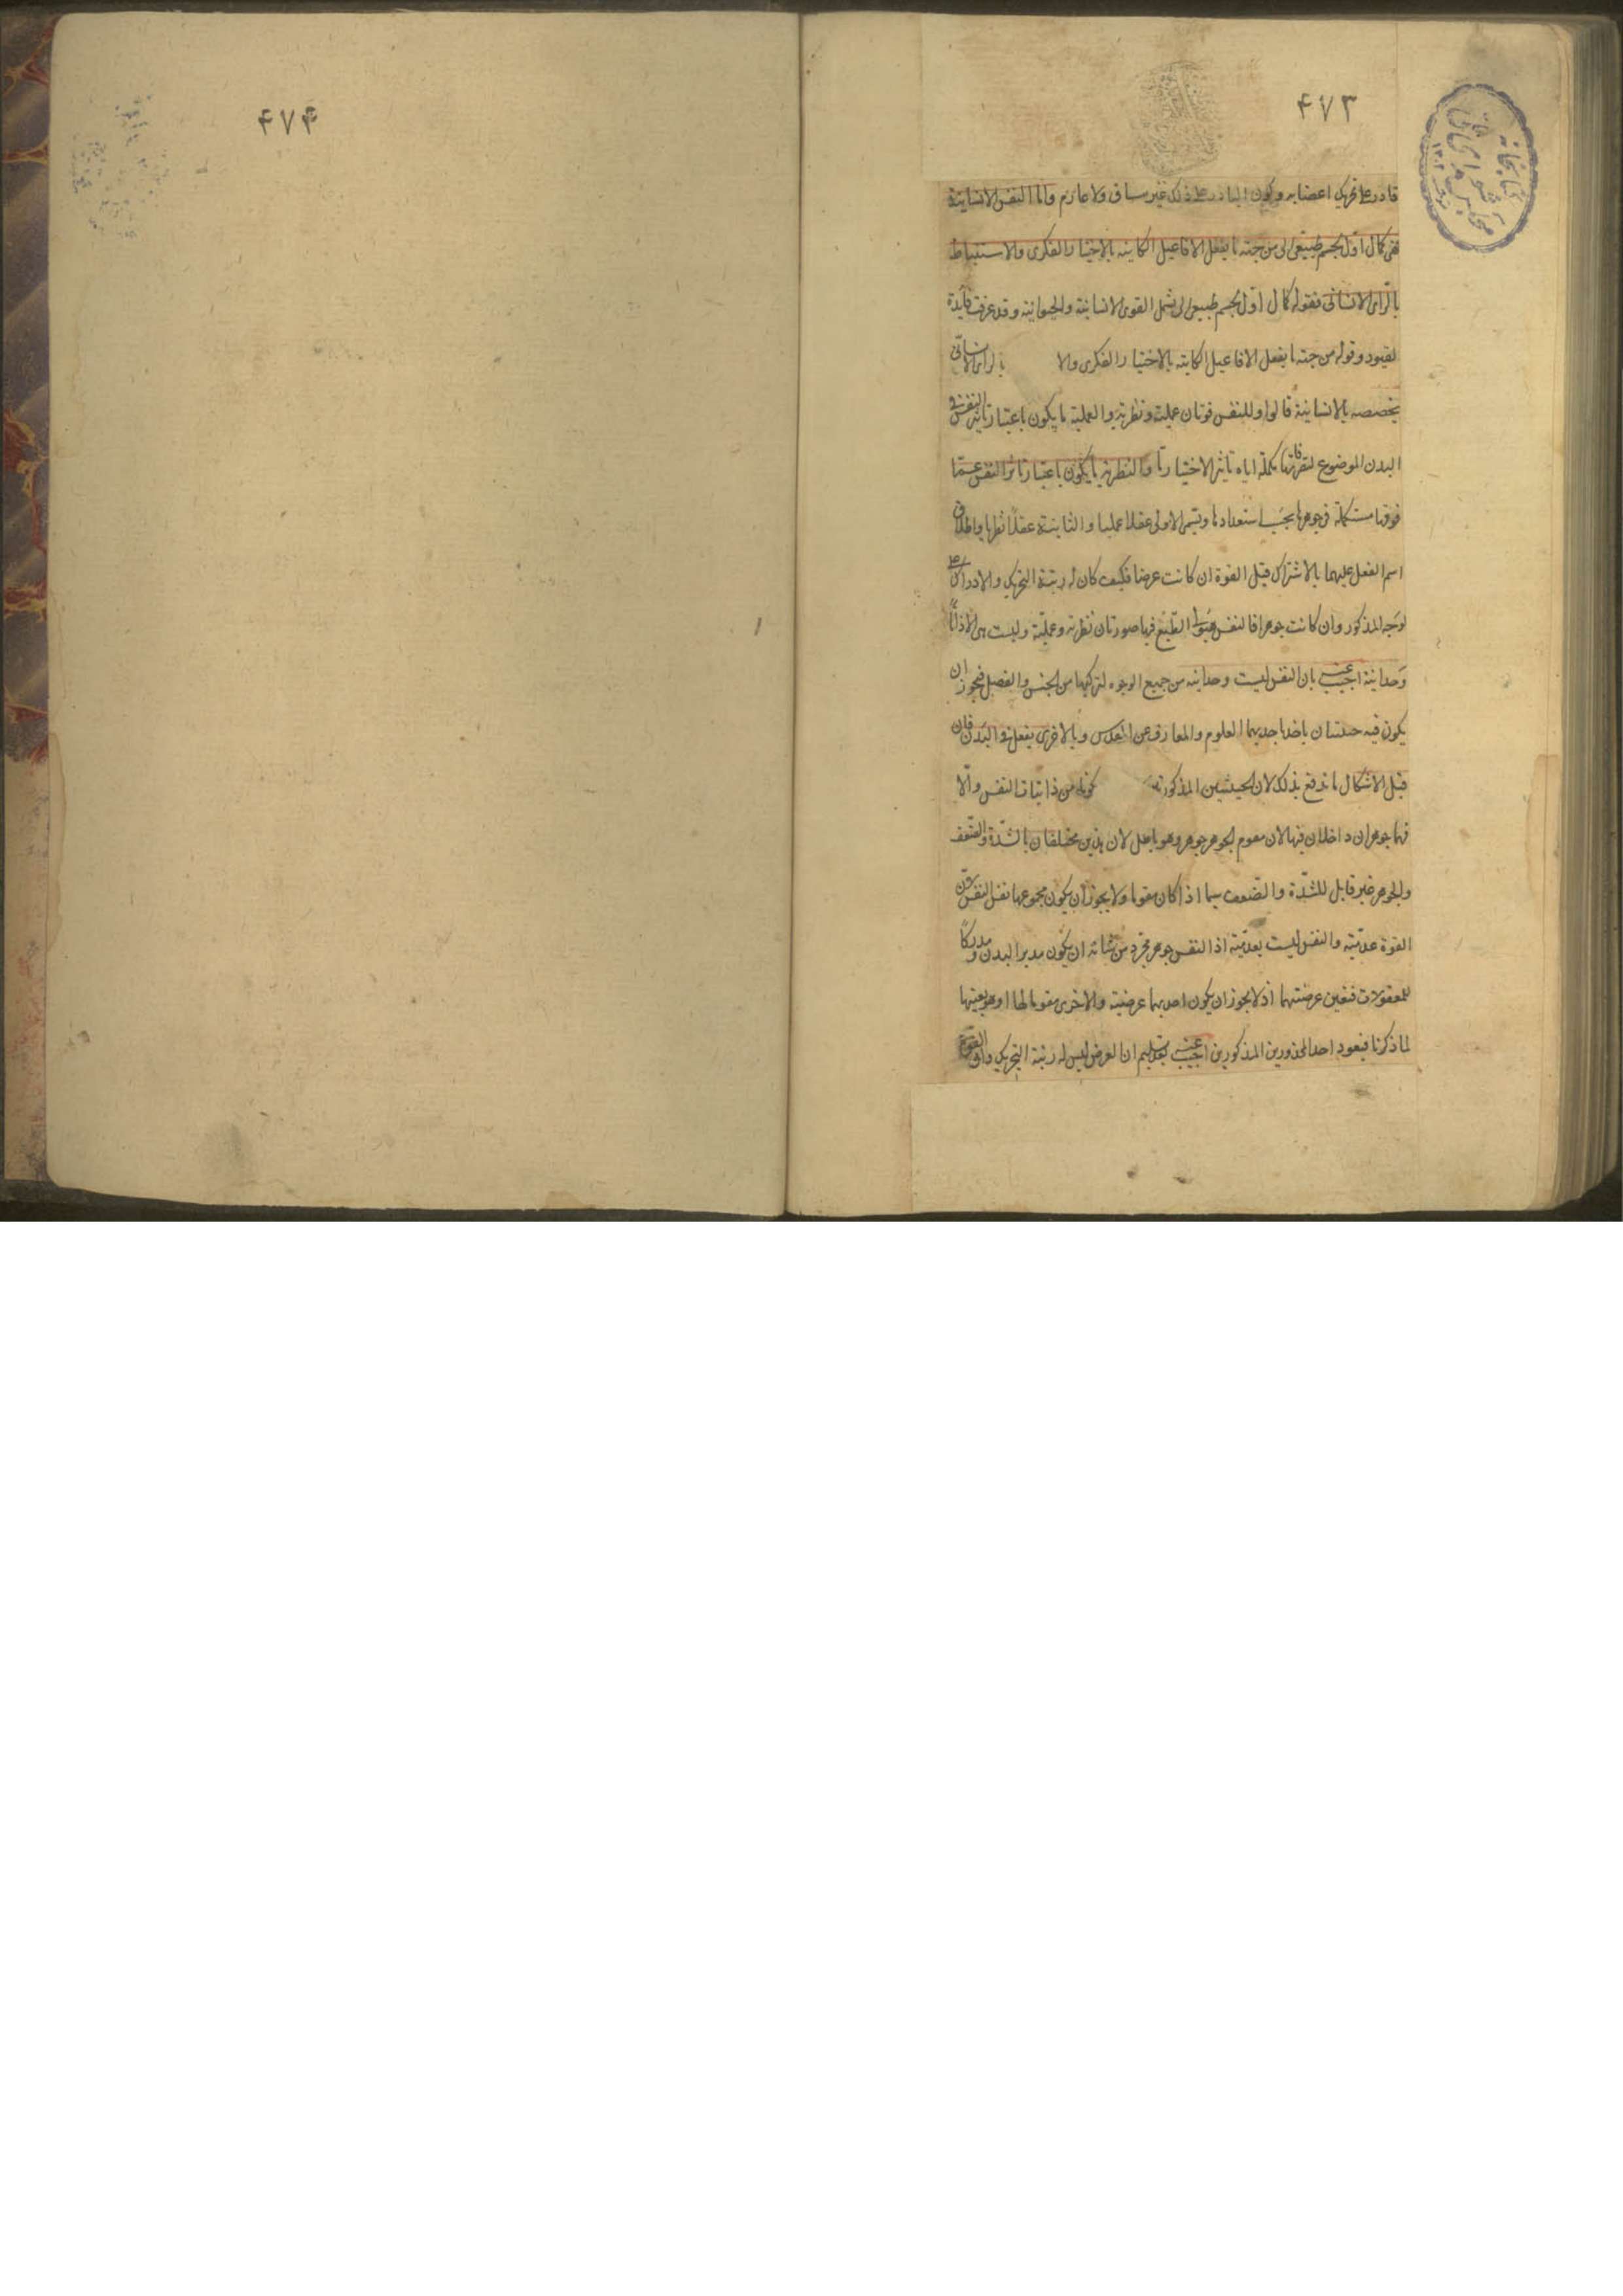 ۴۷۳
قادر على تحريك اعضايه وكون البادر على ذلك غير مساق ولا عازم واما النفس الانسانية
فهى كمال اول لجسم طبيعى الى من جهة ما يفعل الافاعيل الكاينه بالاختيار الفكرى والاستنباط
بالراى الانسانى فقوله كمال اول لجسم طبيعى الى يشمل القوى الانسانية والحيوانية وقد عرفت فايدة
لقيود وقوله من جهة ما يفعل الافاعيل الكاينه بالاختيار الفكرى والا بالراى الانسانى
يخصصه بالانسانية قالوا وللنفس قوتان عملية ونظرية والعملية ما يكون باعتبار تاثير النفس فى
البدن الموضوع لتصرفاتها مكملة اياه تاثير الاختياريا والنظرية ما يكون باعتبار تاثر النفس عما
فوقها مستكملة فى جوهرها بحسب استعدادها وتسمى الاولى عقلا عمليا والثانية عقلا نظريا واطلاق
اسم الفعل عليهما بالاشتراك قيل القوة ان كانت عرضا فكيف كان له رتبة التحريك والادراك على
لوجه المذكور وان كانت جوهرا فالنفس هيولى الطبع فيها صورتان نظرية وعملية وليست هى الا ذاتا
وحدانية اجيب عنه بان النفس ليست وحدانية من جميع الوجوه لتركبها من الجنس والفصل فيجوز ان
يكون فيه حيثيتان ياخذ باحديهما العلوم والمعارف عن القدس وبالاخرى يفعل فى البدن فان
قيل الاشكال ما اندفع بذلك لان الحيثيتين المذكورتين كونها من ذاتيات النفس والا
فهما جوهران داخلان فيها لان مقوم الجوهر جوهر وهو باطل لان هذين مختلفان بالشدة والضعف
والجوهر غير قابل للشدة والضعف سيما اذا كان مقوما ولا يجوز ان يكون مجموعهما نفس النفس لان
القوة عدمية والنفس ليست بعدمية اذ النفس جوهر مجرد من شانه ان يكون مدبر البدن ومدركا
للمعقولات فتعين عرضيتهما اذ لا يجوز ان يكون احديهما عرضية والاخرى مقوما لها او هو بعينها
لما ذكرنا فيعود احد المحذورين المذكورين اجيب عنه بعد تسليم ان العرض ليس له رتبة التحريك وان القوة
۴۷۴
كتابخانه
مجلس شوراى ملى